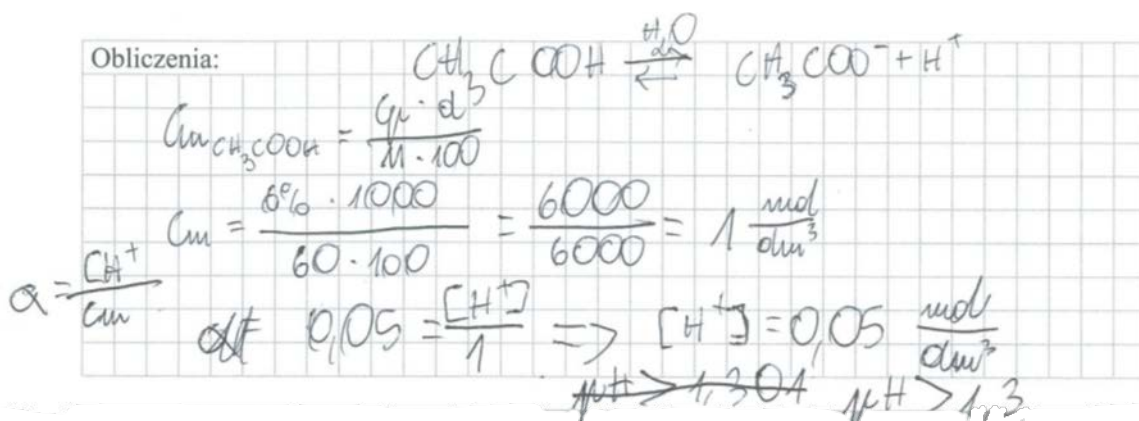 Obliczenia:
CH₃COOH ⇌ CH₃COO⁻ + H⁺
H₂O
Cm CH₃COOH = Cp · d / M · 100
Cm = 6% · 1000 / 60 · 100 = 6000 / 6000 = 1 mol/dm³
α = [H⁺ / Cm
0,05 = [H⁺] / 1 => [H⁺] = 0,05 mol/dm³
pH > 1,301 pH > 1,3